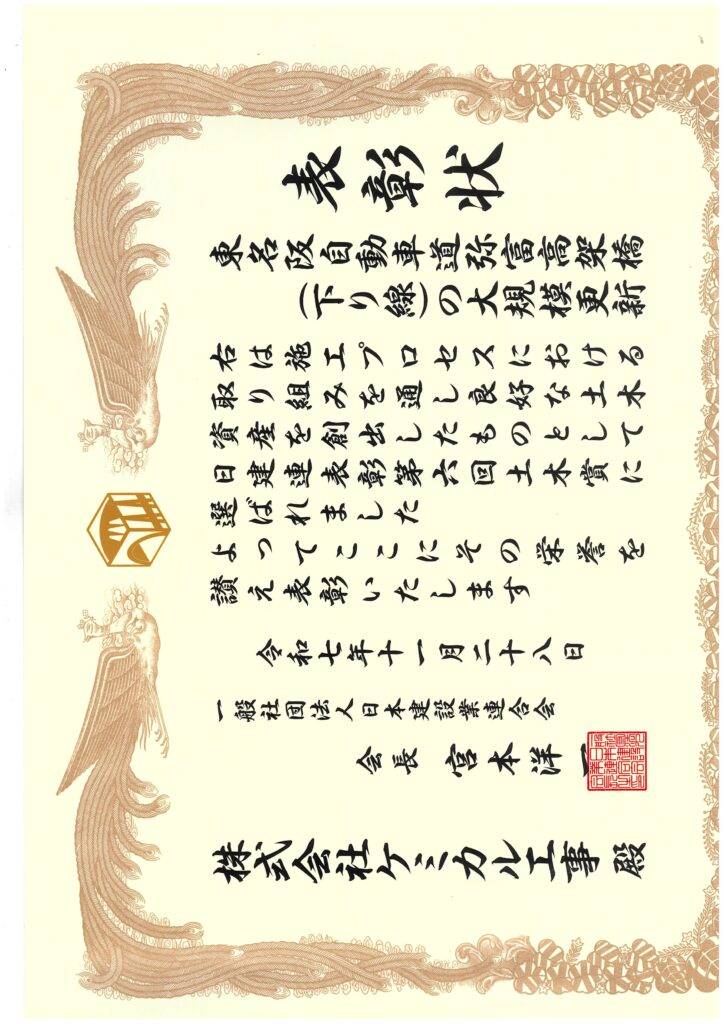 表彰状
東名阪自動車道弥富高架橋
(下り線)の大規模更新
右は施工プロセスにおける
取り組みを通し良好な土木
資産を創出したものとして
日建連表彰第六回土木賞に
選ばれました
よってここにその栄誉を
讃え表彰いたします
令和七年十一月二十八日
一般社団法人日本建設業連合会
会長 宮本洋一
株式会社ケミカル工事殿